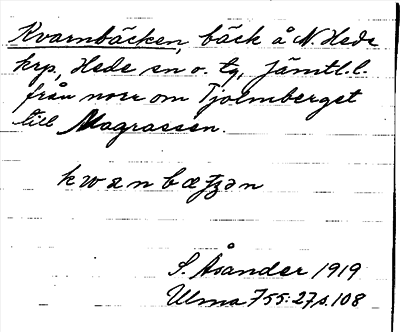 Kvarnbäcken, bäck å N. Hede
krp, Hede sn o. tg, Jämtl. l.
från norr om Tjolmberget
till Magrassen.
S. Åsander 1919
Ulma 755:27, s. 108